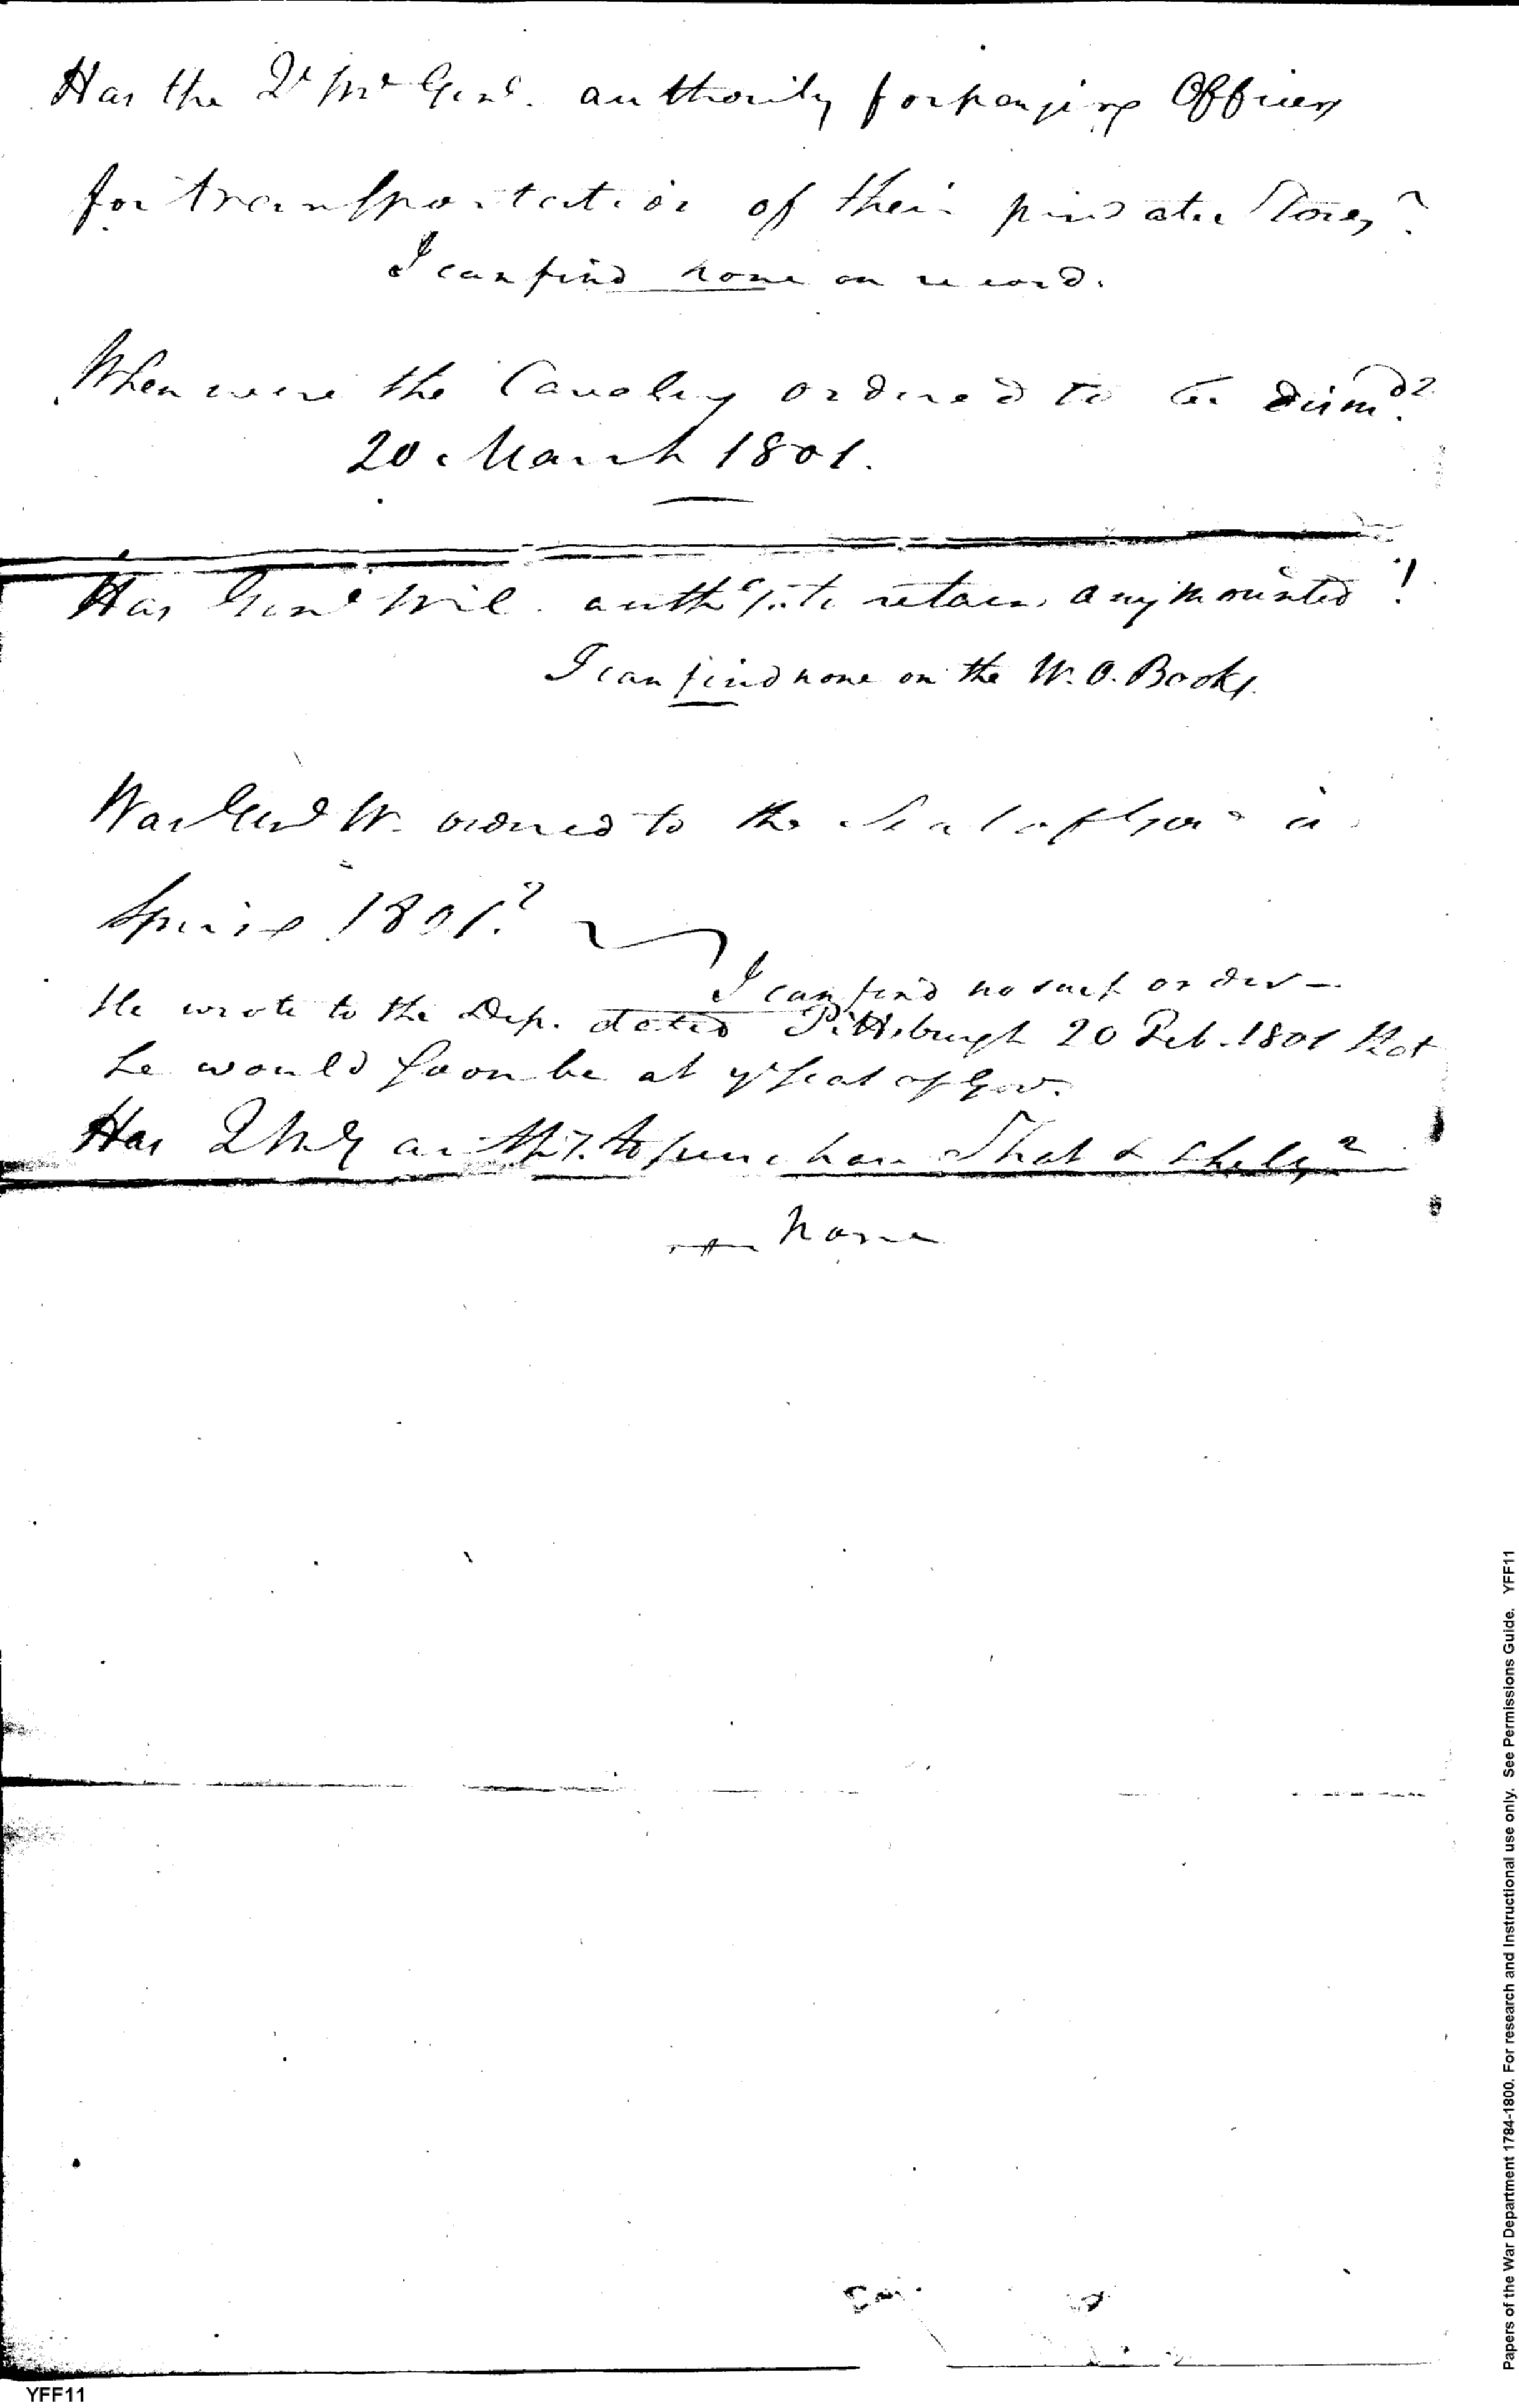 Has the Qr Mr Genl. authority for paying Officers
for transportation of their private Stores?
I can find none on record.
When were the Cavalry ordered to be dismd?
20 March 1801.
Has Genl Wil. authy to retain any mounted?
I can find none on the W. O. Books.
Was Genl W. ordered to the Seat of Govt in
Spring 1801?
I can find no such order —
He wrote to the Dep. dated Pittsburgh 20 Feb. 1801 that
he would soon be at ye seat of Gov.
Has QMG authy. to purchase Shot & Shells?
none
Papers of the War Department 1784-1800. For research and Instructional use only. See Permissions Guide. YFF11
YFF11